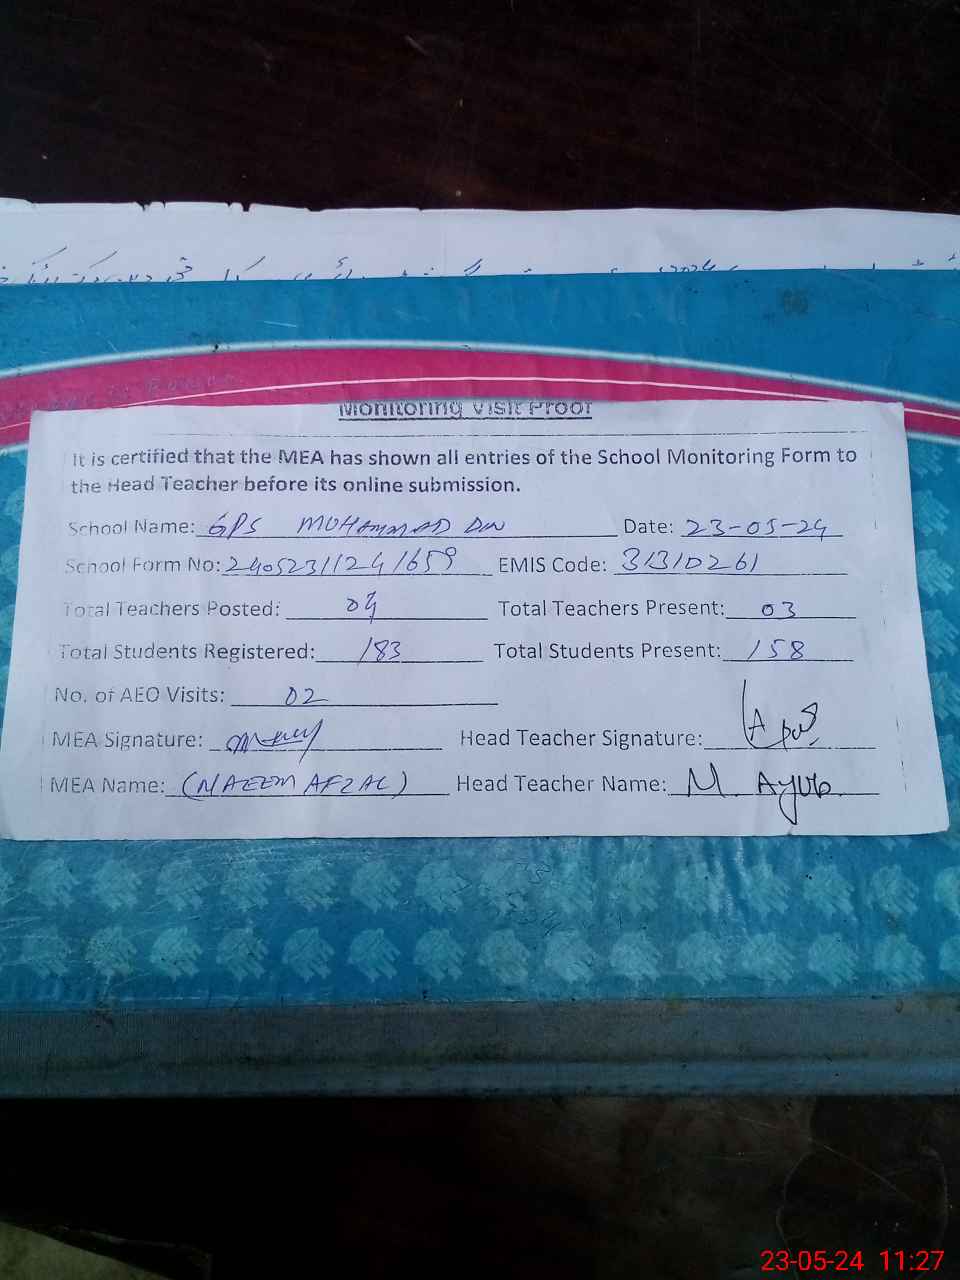 Monitoring Visit Proof
It is certified that the MEA has shown all entries of the School Monitoring Form to
the Head Teacher before its online submission.
School Name: GPS MUHAMMAD DIN Date: 23-05-24
School Form No: 24052311241659 EMIS Code: 31310261
Total Teachers Posted: 04 Total Teachers Present: 03
Total Students Registered: 183 Total Students Present: 158
No. of AEO Visits: 02
MEA Signature: Head Teacher Signature:
MEA Name: (NAEEM AFZAL) Head Teacher Name: M. Ayub
23-05-24 11:27